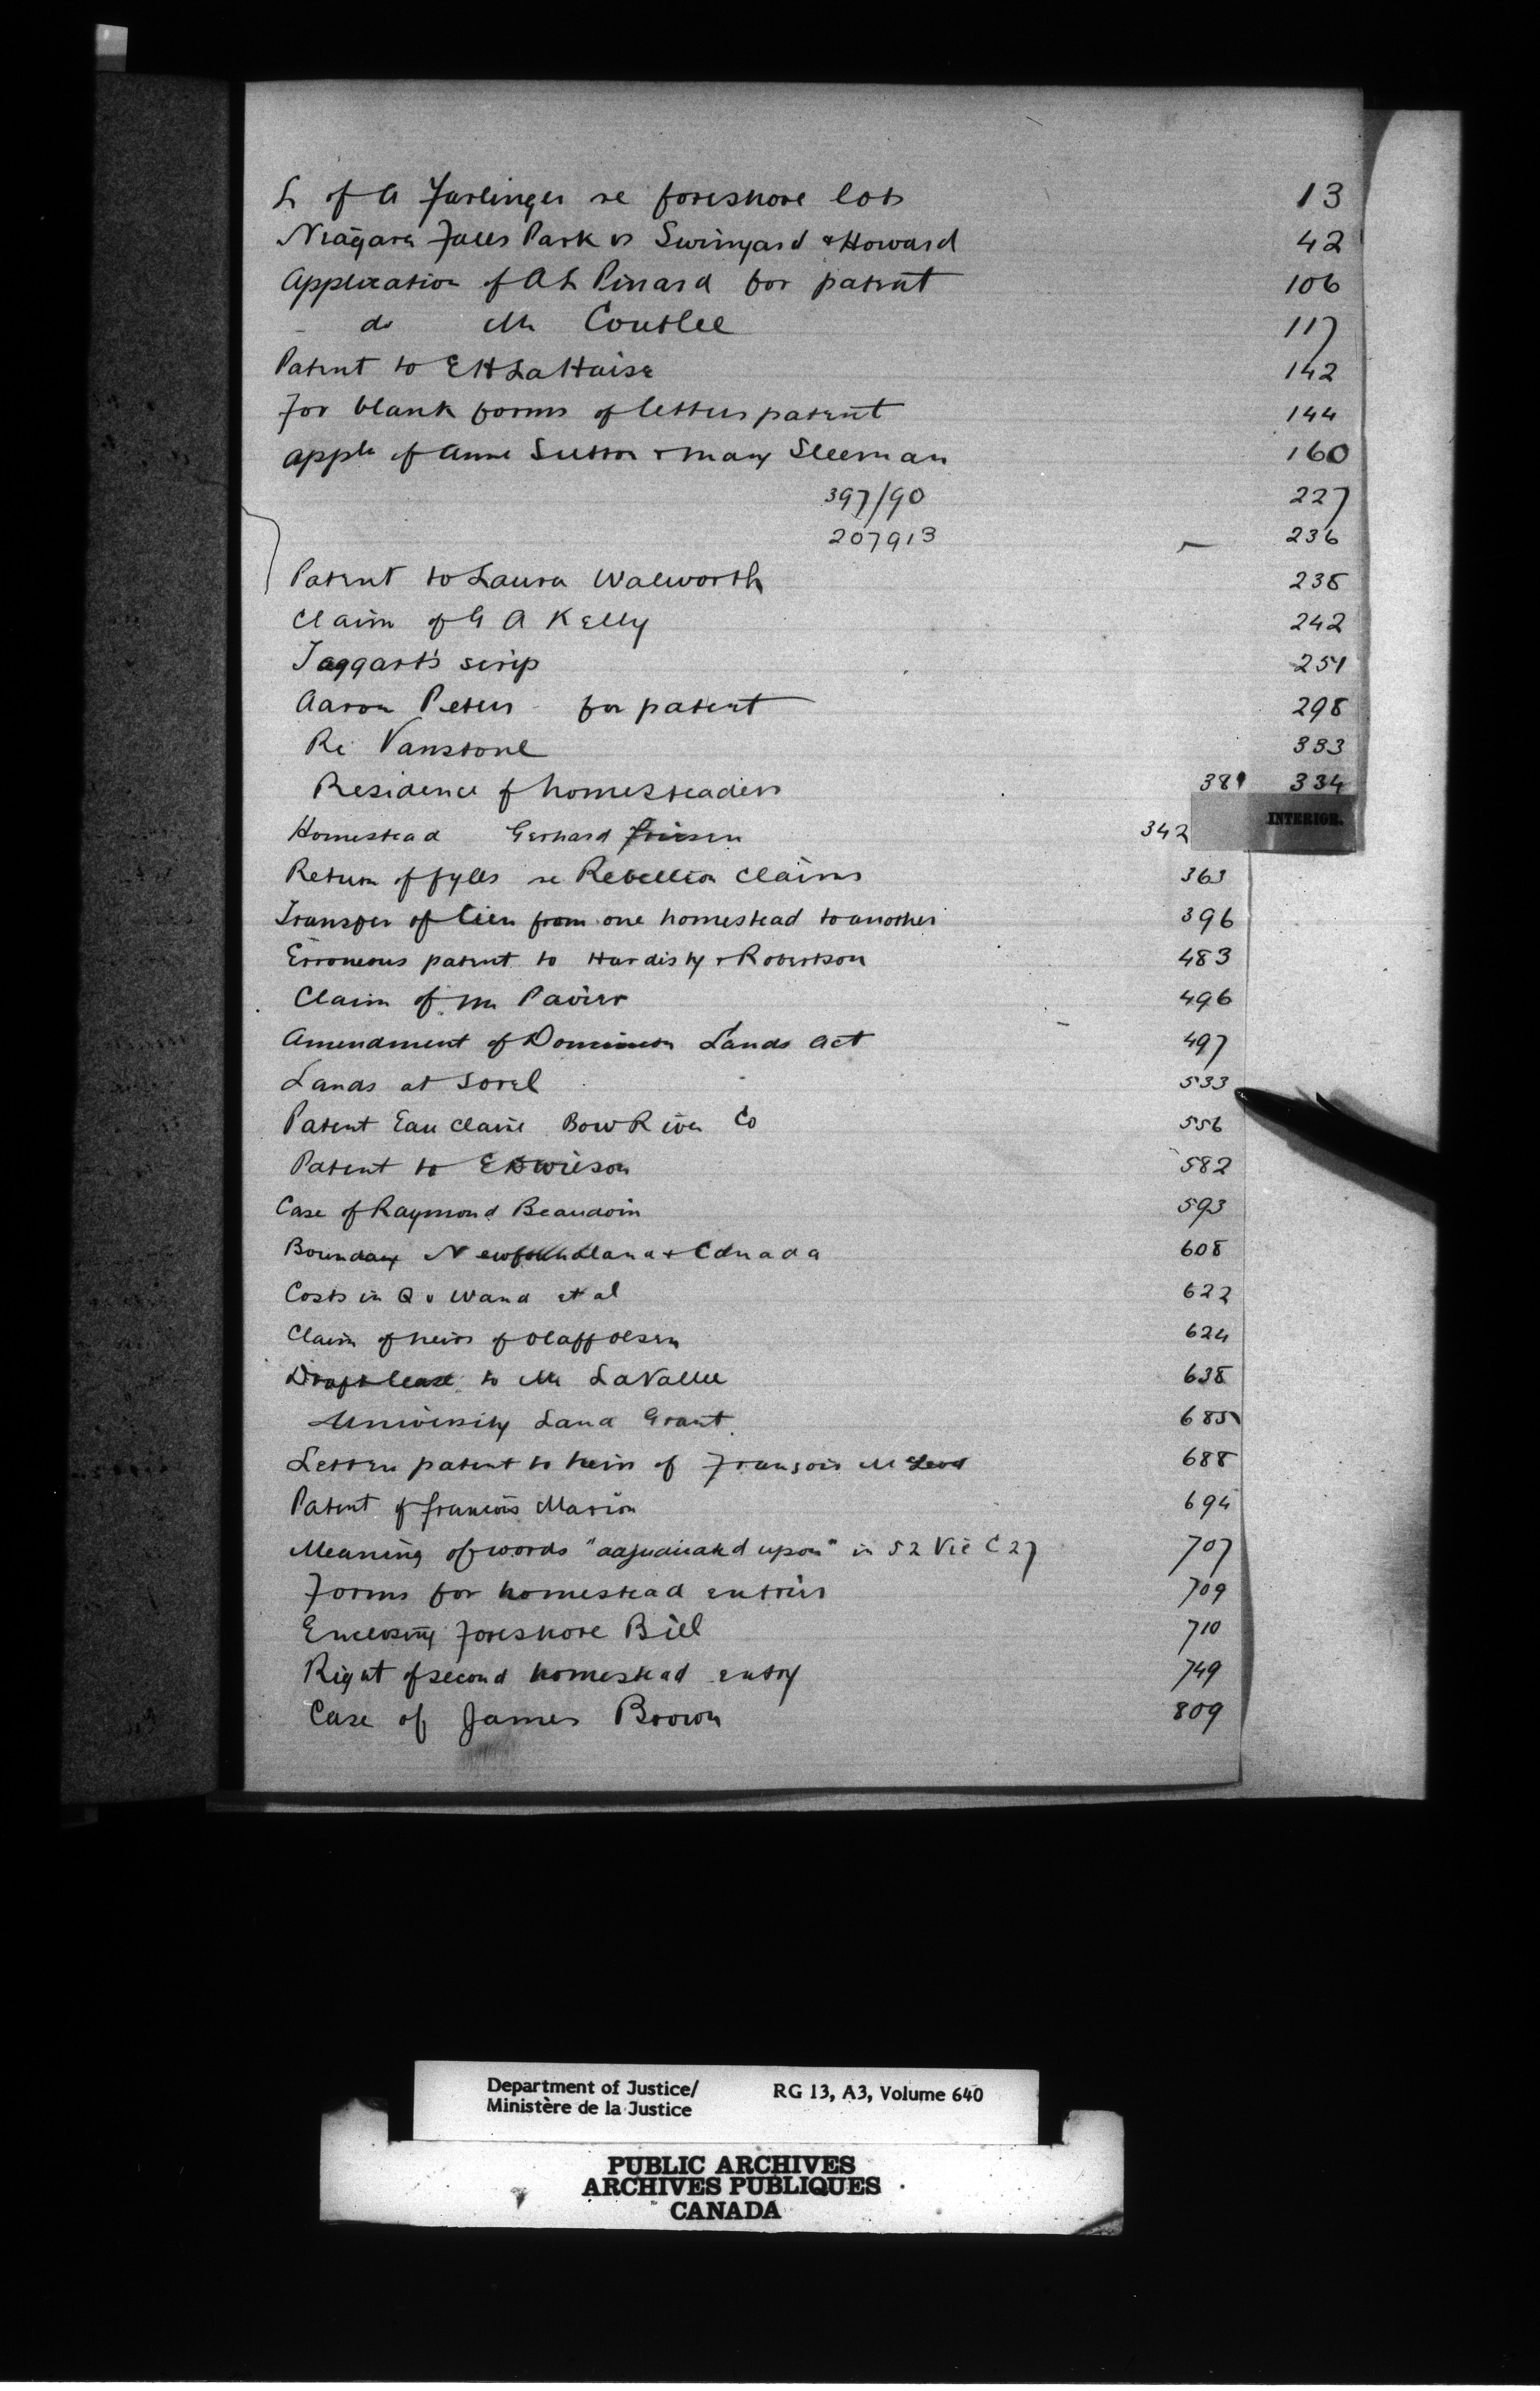 L of A Farlinger re foreshore lots 13
Niagara Falls Park vs Swinyard & Howard 42
Application of A L Pinard for patent 106
do Mr Coutlee 117
Patent to E H LaHaise 142
For blank forms of letters patent 144
appln of Anne Sutton & Mary Sleeman 160
397/90 227
207913 236
Patent to Laura Walworth 238
Claim of G A Kelly 242
Taggart's scrip 251
Aaron Peters for patent 298
Re Vanstone 333
Residence of homesteaders 381 334
INTERIOR.
Homestead Gerhard Friesen 342
Return of fyles re Rebellion Claims 363
Transfer of lien from one homestead to another 396
Erroneous patent to Hardisty & Robertson 483
Claim of Mr Pavier 496
Amendment of Dominion Lands Act 497
Lands at Sorel 533
Patent Eau Claire Bow River Co 556
Patent to E D Wilson 582
Case of Raymond Beaudoin 593
Boundary Newfoundland & Canada 608
Costs in Q v Wand et al 622
Claim of heirs of Olaff Olsen 624
Draft lease to Mr LaVallee 638
University Land Grant 685
Letters patent to heirs of François McLeod 688
Patent of Francois Marion 694
Meaning of words "adjudicated upon" in 52 Vic C 27 707
Forms for homestead entries 709
Enclosing Foreshore Bill 710
Right of second homestead entry 749
Case of James Brown 809
Department of Justice/ RG 13, A3, Volume 640
Ministère de la Justice
PUBLIC ARCHIVES
ARCHIVES PUBLIQUES
CANADA